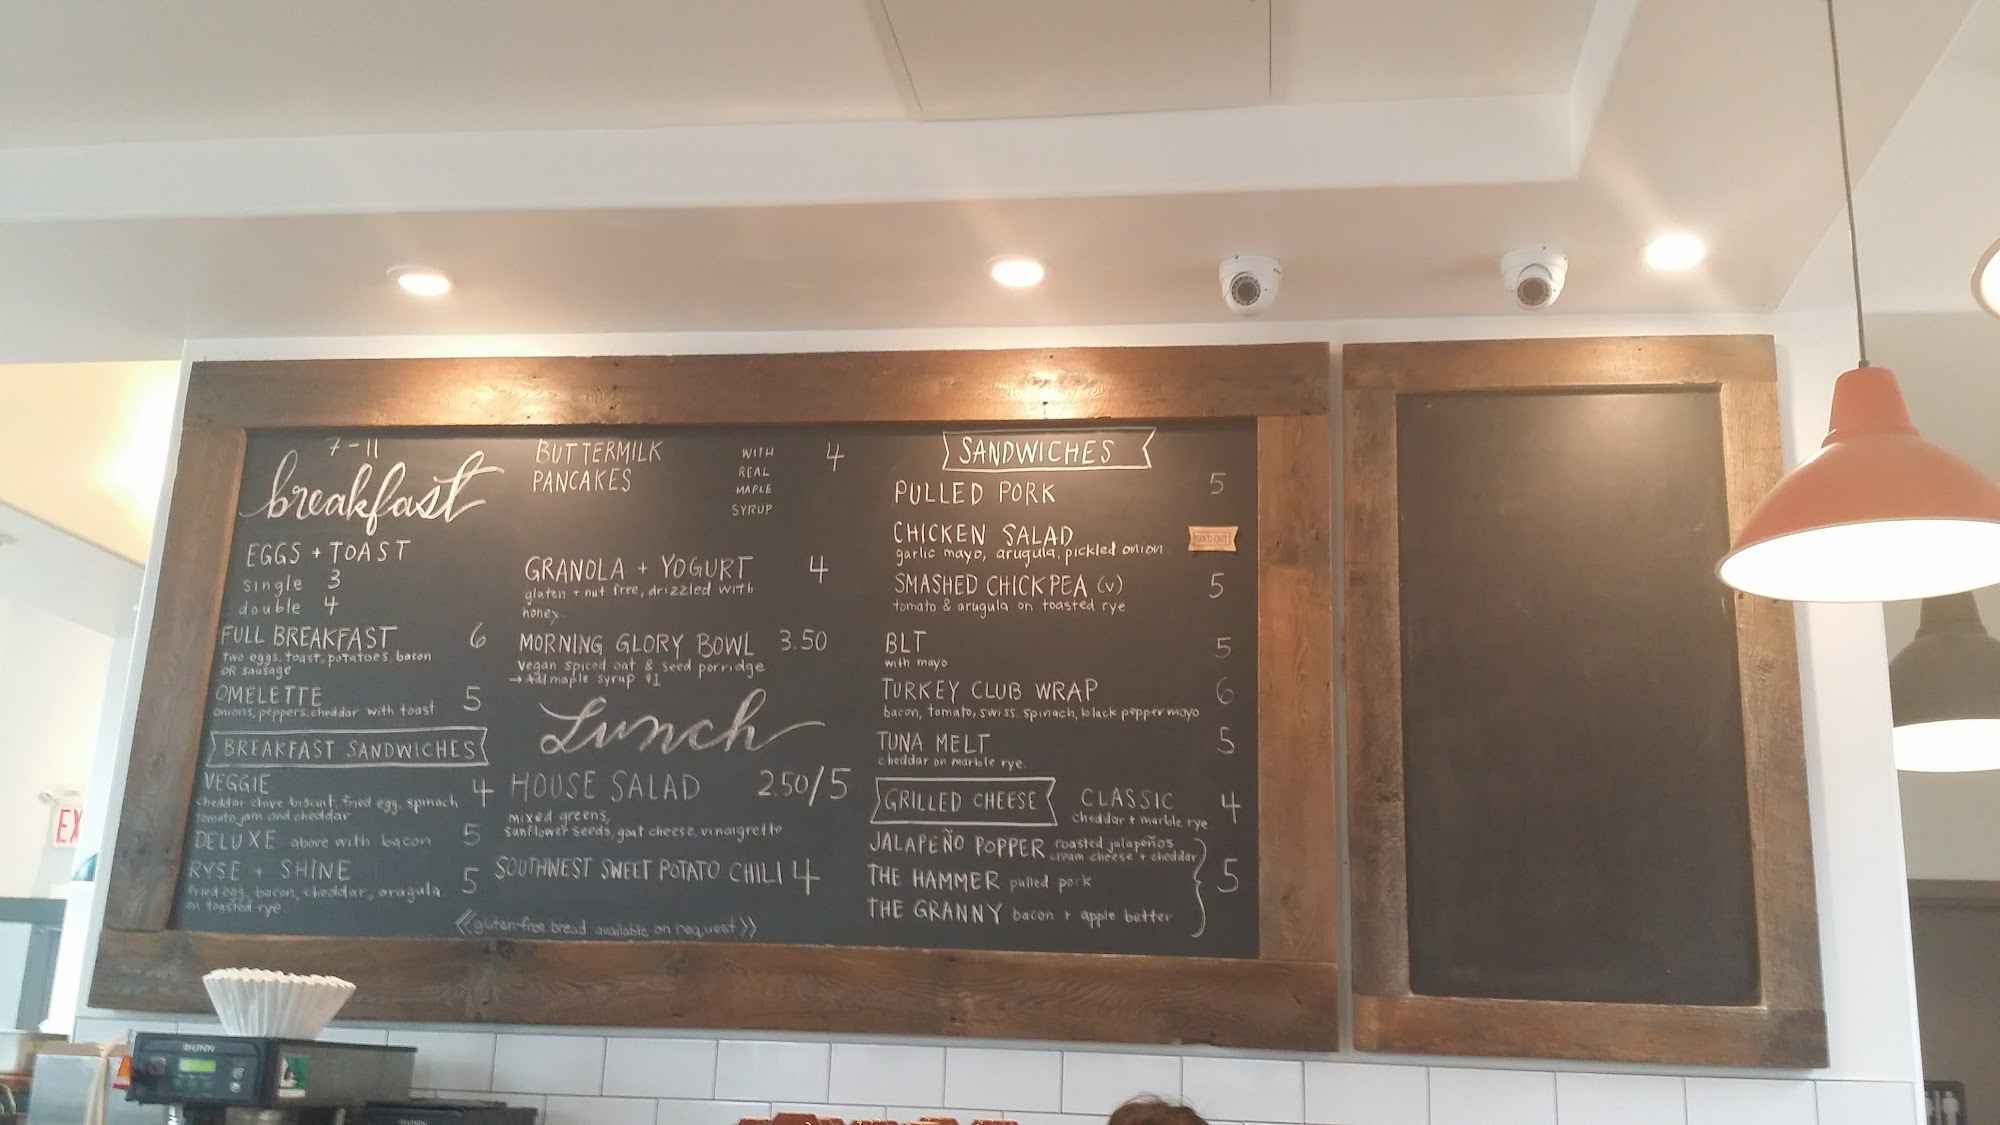 7-11
breakfast
EGGS + TOAST
single 3
double 4
FULL BREAKFAST 6
two eggs, toast, potatoes, bacon
OR sausage
OMELETTE 5
onions, peppers, cheddar with toast
BREAKFAST SANDWICHES
VEGGIE 4
cheddar chive biscuit, fried egg, spinach
tomato jam and cheddar
DELUXE above with bacon 5
RYSE + SHINE 5
fried egg, bacon, cheddar, arugula
on toasted rye
BUTTERMILK
PANCAKES
WITH
REAL
MAPLE
SYRUP
4
GRANOLA + YOGURT 4
gluten + nut free, drizzled with
honey.
MORNING GLORY BOWL 3.50
vegan spiced oat & seed porridge
→ Add maple syrup $1
Lunch
HOUSE SALAD 2.50/5
mixed greens,
sunflower seeds, goat cheese, vinaigrette
SOUTHWEST SWEET POTATO CHILI 4
«gluten-free bread available on request»
SANDWICHES
PULLED PORK 5
CHICKEN SALAD
garlic mayo, arugula, pickled onion
SMASHED CHICKPEA (v) 5
tomato & arugula on toasted rye
BLT 5
with mayo
TURKEY CLUB WRAP 6
bacon, tomato, swiss, spinach, black pepper mayo
TUNA MELT 5
cheddar on marble rye.
GRILLED CHEESE
CLASSIC 4
cheddar + marble rye
JALAPEÑO POPPER roasted jalapeños
cream cheese + cheddar
THE HAMMER pulled pork 5
THE GRANNY bacon + apple butter
EX
BUNN